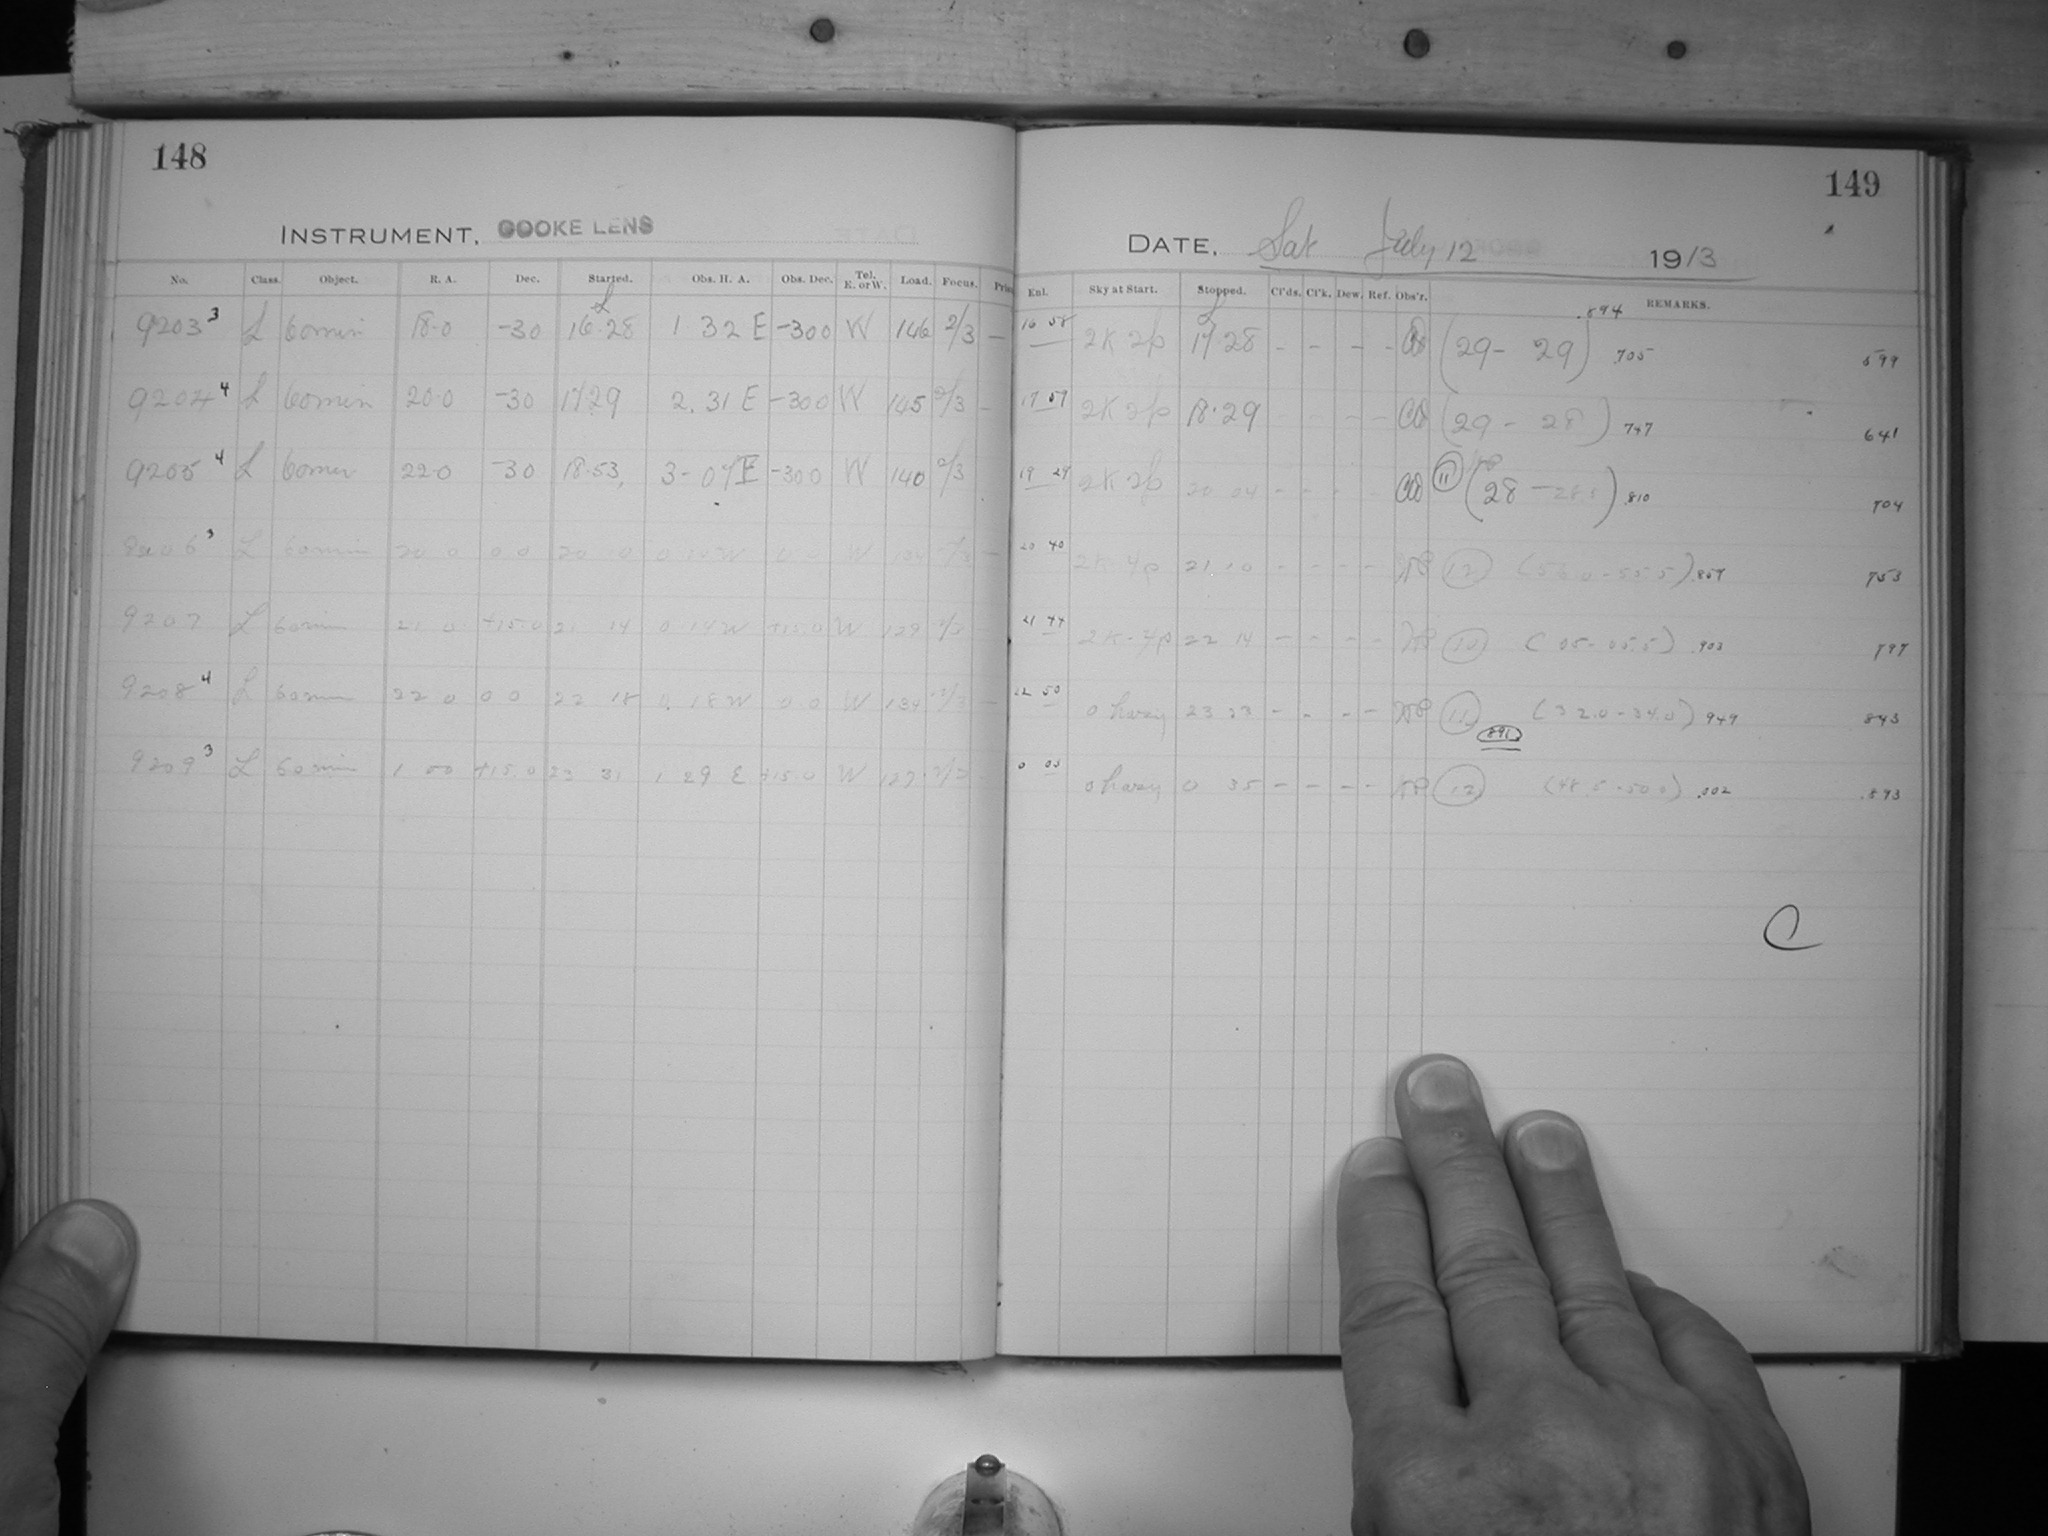 148
INSTRUMENT, COOKE LENS
No. Class. Object. R. A. Dec. Started. Obs. H. A. Obs. Dec. Tel. E. or W. Load. Focus.
9203 3 L 60 min 18.0 -30 16.28 1 32 E -30 0 W 146 2/3 –
9204 4 L 60 min 20.0 -30 17 29 2. 31 E -30 0 W 145 2/3 –
9205 4 L 60 min 22.0 -30 18.53 3-07 E -30 0 W 140 2/3
9206 3 L 60 min 20 0 0 0 20 10 0 10 W 0 0 W 134 2/3 –
9207 L 60 min 21 0 +15.0 21 14 0 14 W +15.0 W 129 2/3
9208 4 L 60 min 22 0 0 0 22 18 0 18 W 0.0 W 134 2/3 –
9209 3 L 60 min 1 00 +15.0 23 31 1 29 E +15.0 W 127 2/3
149
DATE, Sat July 12 1913
Enl. Sky at Start. Stopped. Cl'ds. Cl'k. Dew. Ref. Obs'r. REMARKS.
.894
16 58 2K 2p 17 28 - - - - (29 - 29) .705 599
17 59 2K 2p 18.29 - - - - (29 - 28) 747 641
19 29 2K 2p 20 04 - - - - 11 (28 - 28.5) .810 704
20 40 2K 4p 21 10 - - - - 12 (56.0 - 55.5) .857 753
21 44 2K-4p 22 14 - - - - 10 (05 - 05.5) .903 797
22 50 0 hazy 23 23 - - - - 11 (32.0 - 34.0) 947 843
891
0 05 0 hazy 0 35 - - - - 12 (48.5 - 50.0) .002 .893
C